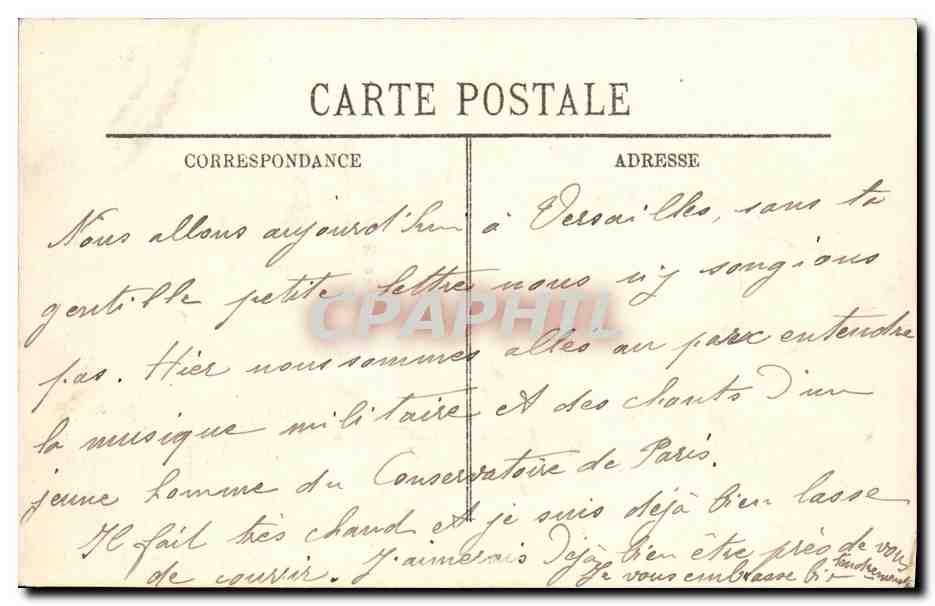 CARTE POSTALE
CORRESPONDANCE
ADRESSE
Nous allons aujourd'hui à Versailles, sans ta
gentille petite lettre nous n'y songions
pas. Hier nous sommes allés au parx entendre
la musique militaire et des chants d'un
jeune homme du Conservatoire de Paris.
Il fait très chaud et je suis déjà bien lasse
de courir. J'aimerais déjà bien être près de vous
Je vous embrasse bien tendrement
CPAPHIL